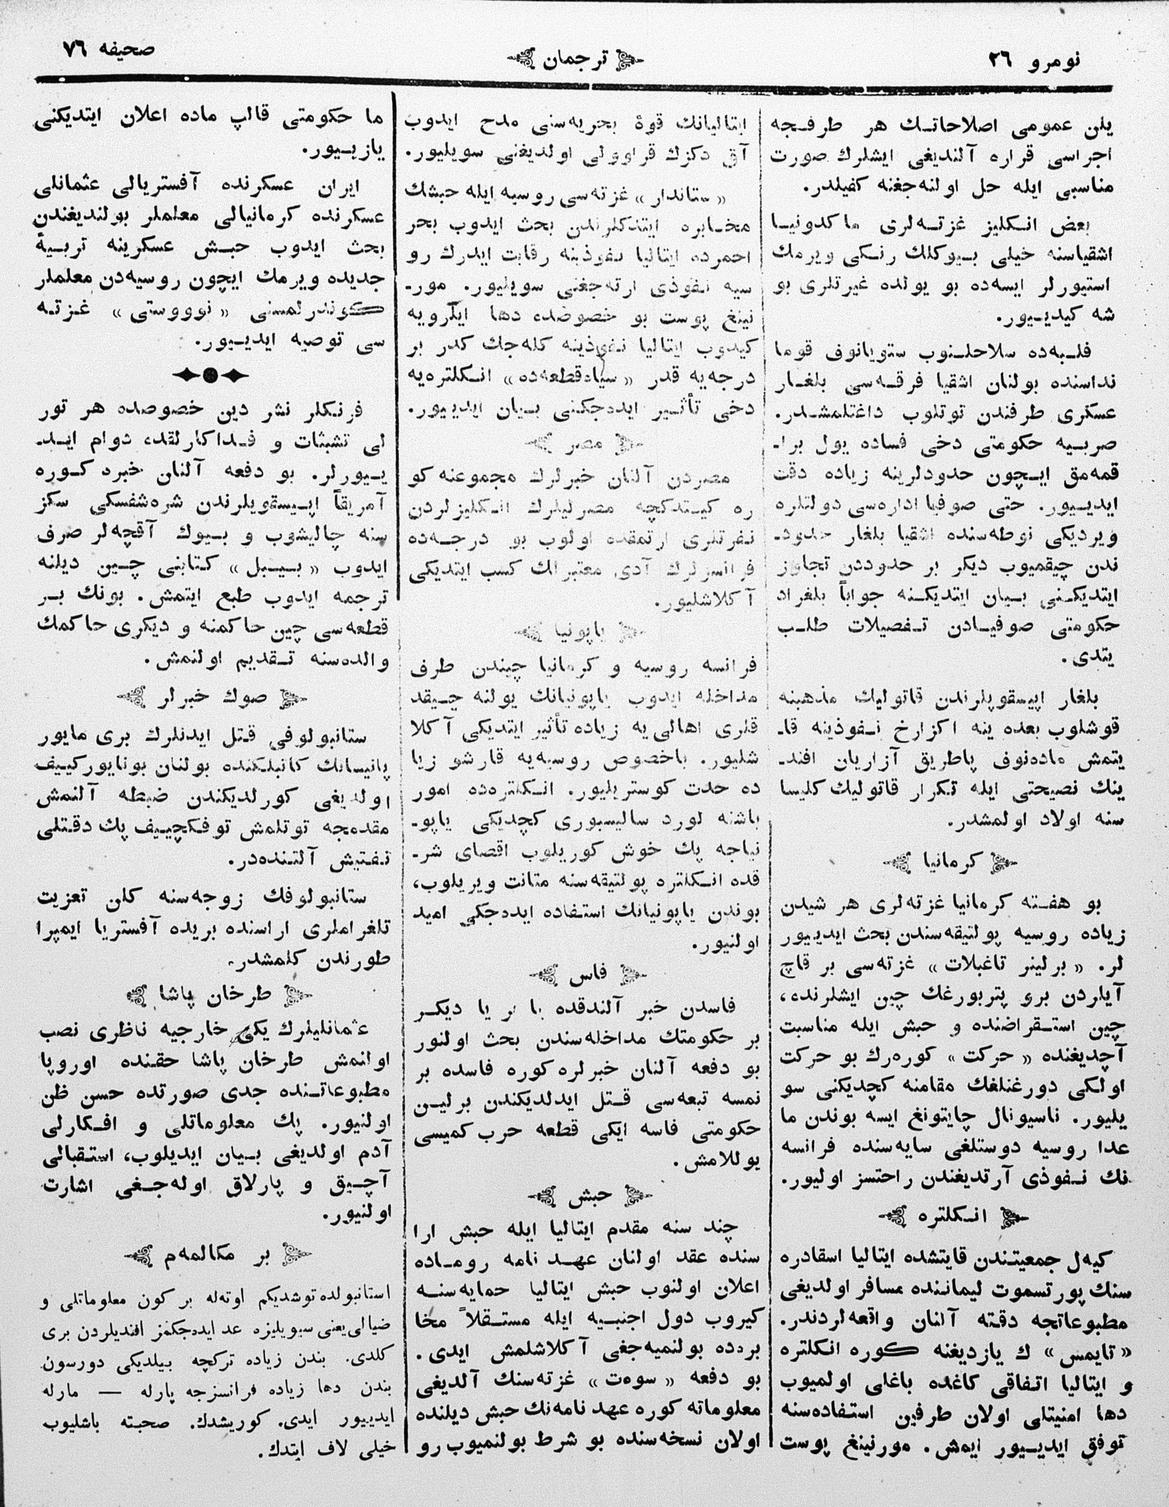 نومرو ٢٦
ترجمان
صحيفه ٧٦
يلن عمومى اصلاحاتك هر طرفجه
اجراسى قراره آلنديغى ايشلرك صورت
مناسبى ايله حل اولنه‌جغنه كفيلدر.
بعض انكليز غزته‌لرى ماكدونيا
اشقياسنه خيلى بيوكلك رنكى ويرمك
استيورلر ايسه‌ده بو يولده غيرتلرى بو
شه كيديور.
فلبه‌ده سلاحلنوب ستويانوف قوما
نداسنده بولنان اشقيا فرقه‌سى بلغار
عسكرى طرفندن توتلوب داغتلمشدر.
صربيه حكومتى دخى فساده يول برا-
قمه‌مق ايچون حدودلرينه زياده دقت
ايديور. حتى صوفيا اداره‌سى دولتلره
ويرديكى نوطه‌سنده اشقيا بلغار حدود-
ندن چيقميوب ديكر بر حدوددن تجاوز
ايتديكنى بيان ايتديكنه جواباً بلغراد
حكومتى صوفيادن تفصيلات طلب
يتدى.
بلغار اپيسقوپلرندن قاتوليك مذهبنه
قوشلوب بعده ينه اكزارخ نفوذينه قا-
يتمش ماده‌نوف پاطريق آزاريان افند-
ينك نصيحتى ايله تكرار قاتوليك كليسا
سنه اولاد اولمشدر.
كرمانيا
بو هفته كرمانيا غزته‌لرى هر شيدن
زياده روسيه پولتيقه‌سندن بحث ايدييور
لر. «برلينر تاغبلات» غزته‌سى بر قاچ
آيلردن برو پتربورغك چين ايشلرنده،
چين استقراضنده و حبش ايله مناسبت
آچديغنده «حركت» كوره‌رك بو حركت
اولكى دورغنلغك مقامنه كچديكنى سو
يليور. ناسيونال چايتونغ ايسه بوندن ما
عدا روسيه دوستلغى سايه‌سنده فرانسه
نك نفوذى آرتديغندن راحتسز اوليور.
انكلتره
كيه‌ل جمعيتندن قايتشده ايتاليا اسقادره
سنك پورتسموت ليماننده مسافر اولديغى
مطبوعاتجه دقته آلنان واقعه‌لردندر.
«تايمس» ك يازديغنه كوره انكلتره
و ايتاليا اتفاقى كاغده باغلى اولميوب
دها امنيتلى اولان طرفين استفاده‌سنه
توفق ايديور ايمش. مورنينغ پوست
ايتاليانك قوۀ بحريه‌سنى مدح ايدوب
آق دكزك قراوولى اولديغنى سويليور.
«ستاندار» غزته‌سى روسيه ايله حبشك
مخابره ايتدكلرندن بحث ايدوب بحر
احمرده ايتاليا نفوذينه رقابت ايدرك رو
سيه نفوذى ارته‌جغنى سويليور. مور-
نينغ پوست بو خصوصده دها ايلرويه
كيدوب ايتاليا نفوذينه كله‌جك كدر بر
درجه‌يه قدر «سياه قطعه‌ده» انكلتره‌يه
دخى تأثير ايده‌جكنى بيان ايدييور.
مصر
مصردن آلنان خبرلرك مجموعنه كو
ره كيتدكچه مصرليلرك انكليزلردن
نفرتلرى ارتمقده اولوب بو درجه‌ده
فرانسزلرك آدى معتبرلك كسب ايتديكى
آكلاشليور.
ياپونيا
فرانسه روسيه و كرمانيا چيندن طرف
مداخله ايدوب ياپونيانك يولنه چيقد
قلرى اهالى‌يه زياده تأثير ايتديكى آكلا
شليور. باخصوص روسيه‌يه قارشو زيا
ده حدت كوستريليور. انكلتره‌ده امور
باشنه لورد ساليسبورى كچديكى ياپو-
نياجه پك خوش كوريلوب اقصاى شر-
قده انكلتره پولتيقه‌سنه متانت ويريلوب،
بوندن ياپونيانك استفاده ايده‌جكى اميد
اولنيور.
فاس
فاسدن خبر آلندقده با بر يا ديكر
بر حكومتك مداخله‌سندن بحث اولنور
بو دفعه آلنان خبرلره كوره فاسده بر
نمسه تبعه‌سى قتل ايدلديكندن برلين
حكومتى فاسه ايكى قطعه حرب كميسى
يوللامش.
حبش
چند سنه مقدم ايتاليا ايله حبش ارا
سنده عقد اولنان عهد نامه روماده
اعلان اولنوب حبش ايتاليا حمايه‌سنه
كيروب دول اجنبيه ايله مستقلاً مخا
برده بولنميه‌جغى آكلاشلمش ايدى.
بو دفعه «سوه‌ت» غزته‌سنك آلديغى
معلوماته كوره عهد نامه‌نك حبش ديلنده
اولان نسخه‌سنده بو شرط بولنميوب رو
ما حكومتى قالپ ماده اعلان ايتديكنى
يازييور.
ايران عسكرنده آفستريالى عثمانلى
عسكرنده كرمانيالى معلملر بولنديغندن
بحث ايدوب حبش عسكرينه تربيۀ
جديده ويرمك ايچون روسيه‌دن معلملر
كوندرلمسنى «نوووستى» غزته
سى توصيه ايديور.
فرنكلر نشر دين خصوصده هر تور
لى تشبثات و فداكارلقده دوام ايد-
ييورلر. بو دفعه آلنان خبره كوره
آمريقا اپيسقوپلرندن شره‌شفسكى سكز
سنه چاليشوب و بيوك آقچه‌لر صرف
ايدوب «بيبل» كتابنى چين ديلنه
ترجمه ايدوب طبع ايتمش. بونك بر
قطعه‌سى چين حاكمنه و ديكرى حاكمك
والده‌سنه تقديم اولنمش.
صوك خبرلر
ستانبولوفى قتل ايدنلرك برى مايور
پانيسانك كانبلكنده بولنان بونايوركييف
اولديغى كورلديكندن ضبطه آلنمش
مقدمجه توتلمش توفكچييف پك دقتلى
تفتيش آلتنده‌در.
ستانبولوفك زوجه‌سنه كلن تعزيت
تلغراملرى اراسنده بريده آفستريا ايمپرا
طورندن كلمشدر.
طرخان پاشا
عثمانليلرك يكى خارجيه ناظرى نصب
اولنمش طرخان پاشا حقنده اوروپا
مطبوعاتنده جدى صورتده حسن ظن
اولنيور. پك معلوماتلى و افكارلى
آدم اولديغى بيان ايديلوب، استقبالى
آچيق و پارلاق اوله‌جغى اشارت
اولنيور.
بر مكالمه‌م
استانبولده توشديكم اوته‌له بر كون معلوماتلى و
ضيالى يعنى سيويليزه عد ايده‌جكمز افنديلردن برى
كلدى. بندن زياده تركچه بيلديكى دورسون
بندن دها زياده فرانسزجه پارله — مارله
ايدييور ايدى. كوريشدك. صحبته باشليوب
خيلى لاف ايتدك.